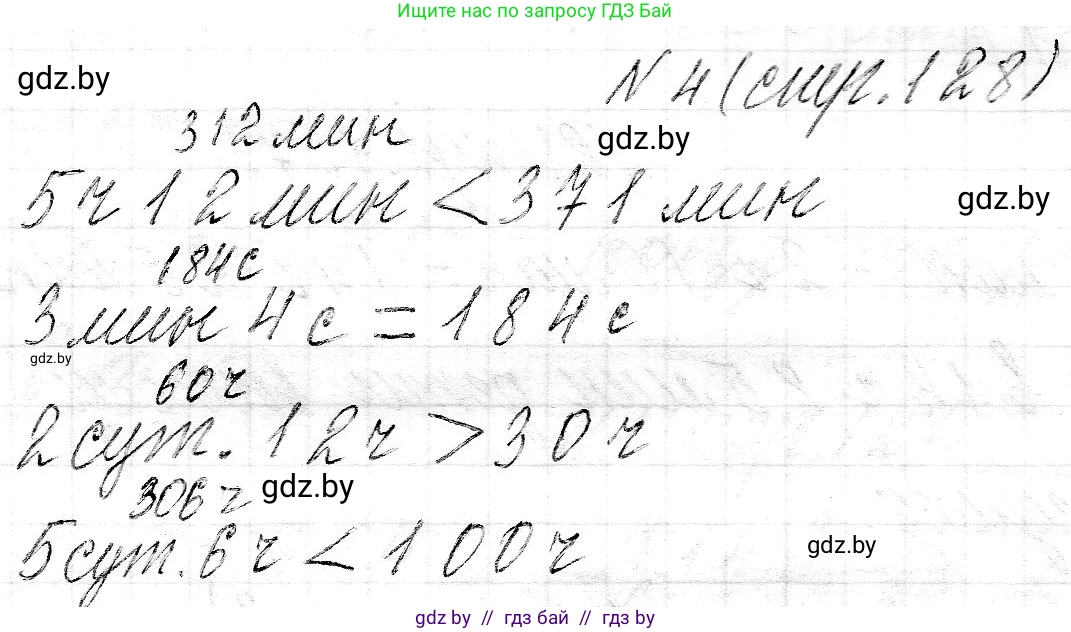 Ищите нас по запросу ГДЗ Бай
gdz.by
N 4 (стр. 128)
312 мин
gdz.by
5 ч 12 мин < 371 мин
gdz.by
184 с
3 мин 4 с = 184 с
gdz.by
60 ч
2 сут. 12 ч > 30 ч
306 ч
gdz.by
5 сут. 6 ч < 100 ч
gdz.by
gdz.by // гдз бай // гдз by